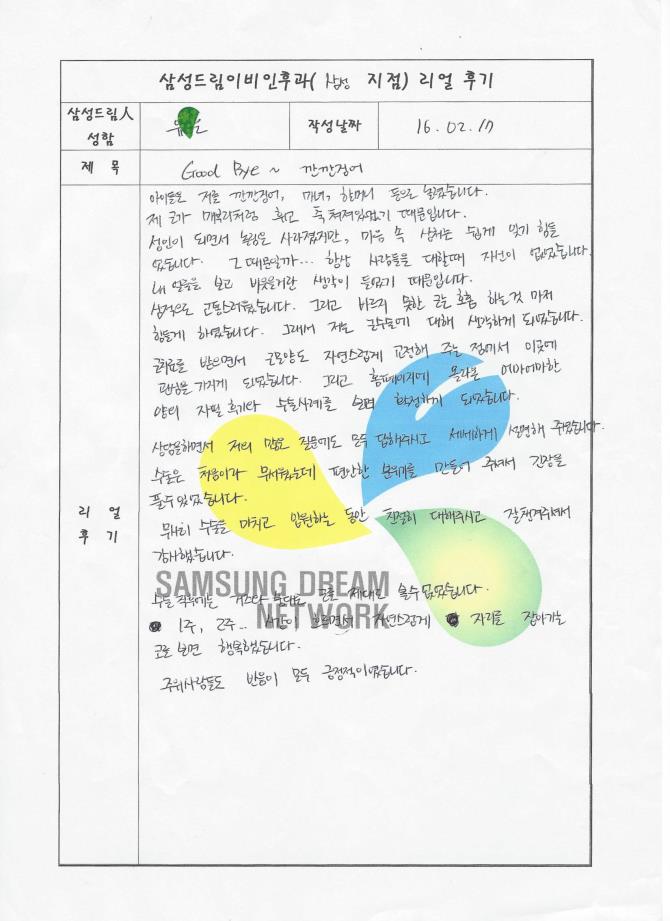 삼성드림이비인후과( 삼성 지점) 리얼 후기
삼성드림人
성함
작성날짜 16. 02. 17
제 목 Good Bye ~ 깐깐징어
아이들은 저를 깐깐징어, 마녀, 할머니 등으로 놀렸습니다.
제 코가 매부리처럼 휘고 축 쳐져있었기 때문입니다.
성인이 되면서 놀림은 사라졌지만, 마음 속 상처는 쉽게 잊기 힘들
었습니다. 그 때문일까... 항상 사람들을 대할때 자신이 없었습니다.
내 얼굴을 보고 비웃을거란 생각이 들었기 때문입니다.
심적으로 고통스러웠습니다. 그리고 바르지 못한 코는 호흡 하는것 마저
힘들게 하였습니다. 그래서 저는 코수술에 대해 생각하게 되었습니다.
코치료를 받으면서 코모양도 자연스럽게 교정해 주는 점에서 이곳에
관심을 가지게 되었습니다. 그리고 홈페이지에 올라온 어마어마한
양의 자필 후기와 수술사례를 보며 확정하게 되었습니다.
상담을하면서 저의 많은 질문에도 모두 답해주시고 세세하게 설명해 주셨습니다.
수술은 처음이라 무서웠는데 편안한 분위기를 만들어 주셔서 긴장을
풀수있었습니다.
리 얼
후 기
무사히 수술을 마치고 입원하는 동안 친절히 대해주시고 잘챙겨주셔서
감사했습니다.
SAMSUNG DREAM
NETWORK
수술 직후에는 코를 제대로 볼수 없었습니다.
1주, 2주... 시간이 흐르면서 자연스럽게 자리를 잡아가는
코를 보면 행복했습니다.
주위사람들도 반응이 모두 긍정적이었습니다.